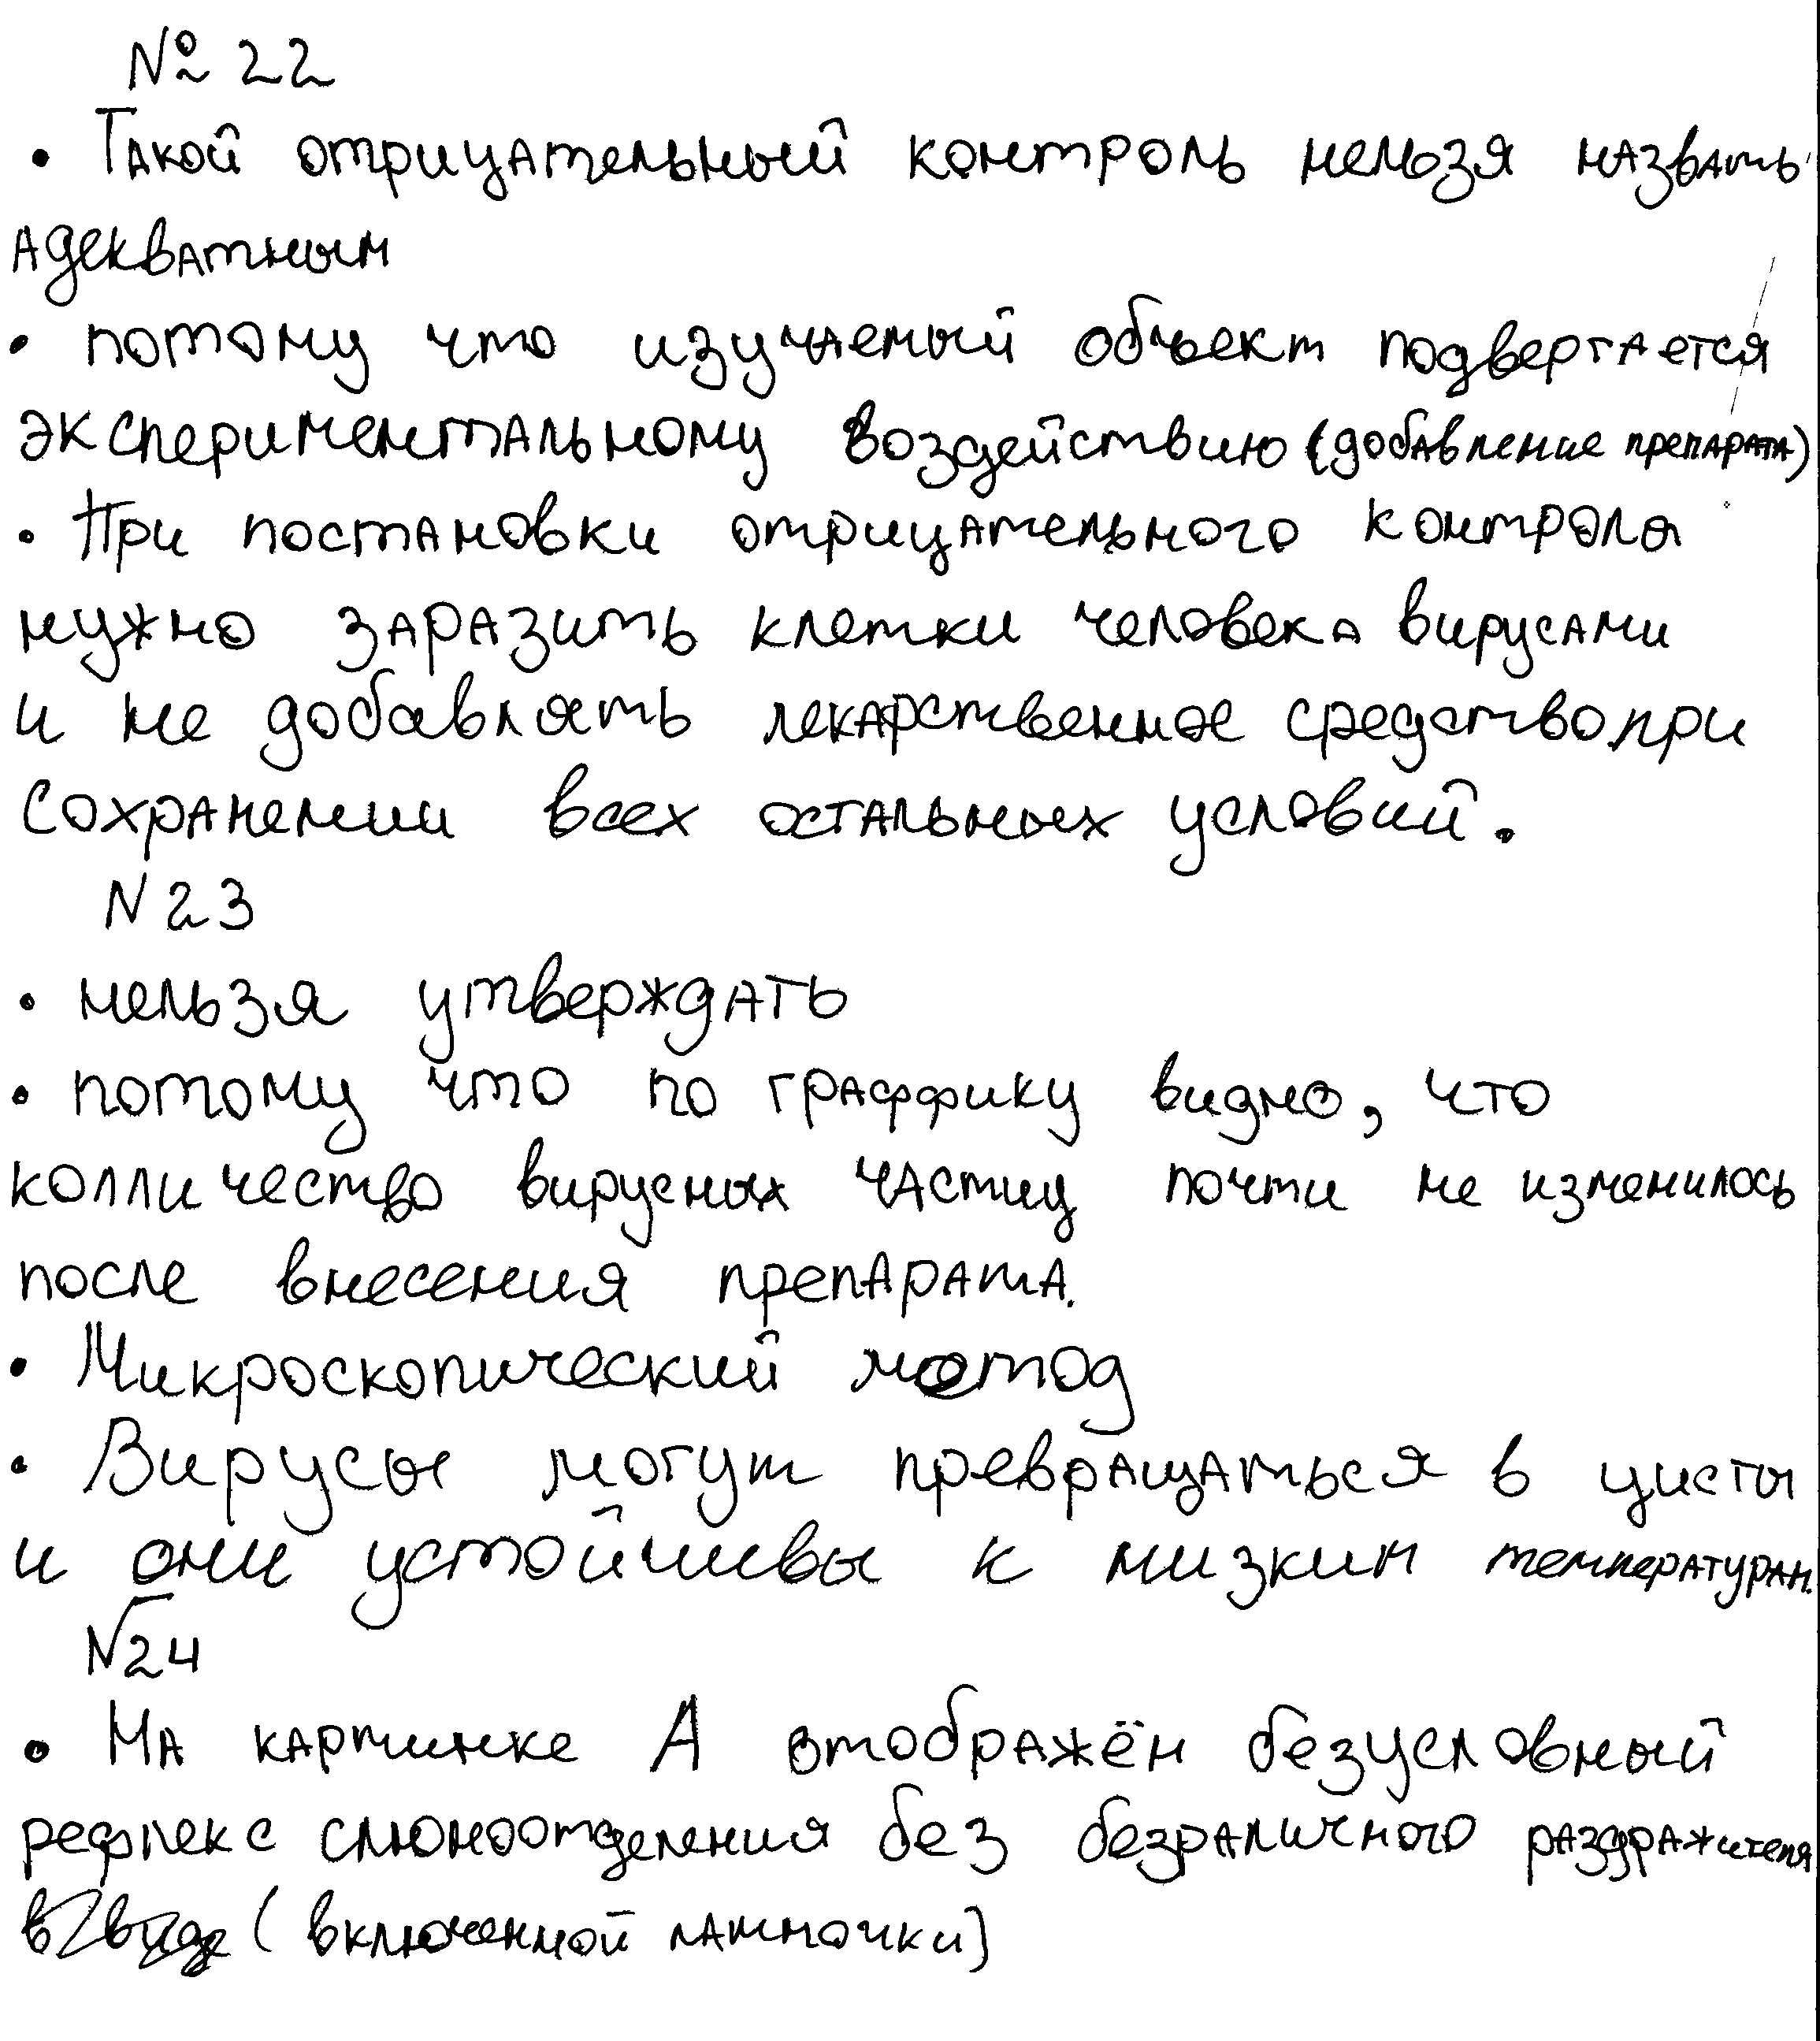 № 22
• Такой отрицательный контроль нельзя назвать
адекватным
• потому что изучаемый объект подвергается
экспериментальному воздействию (добавление препарата)
• При постановки отрицательного контроля
нужно заразить клетки человека вирусами
и не добавлять лекарственное средство, при
сохранении всех остальных условий.
N 23
• нельзя утверждать
• потому что по граффику видно, что
колличество вирусных частиц почти не изменилось
после внесения препарата.
• Микроскопический метод
• Вирусы могут превращаться в цисты
и они устойчивы к низким температурам.
N24
• На картинке А отображён безусловный
рефлекс слюноотделения без безраличного раздражителя
(включенной лампочки)